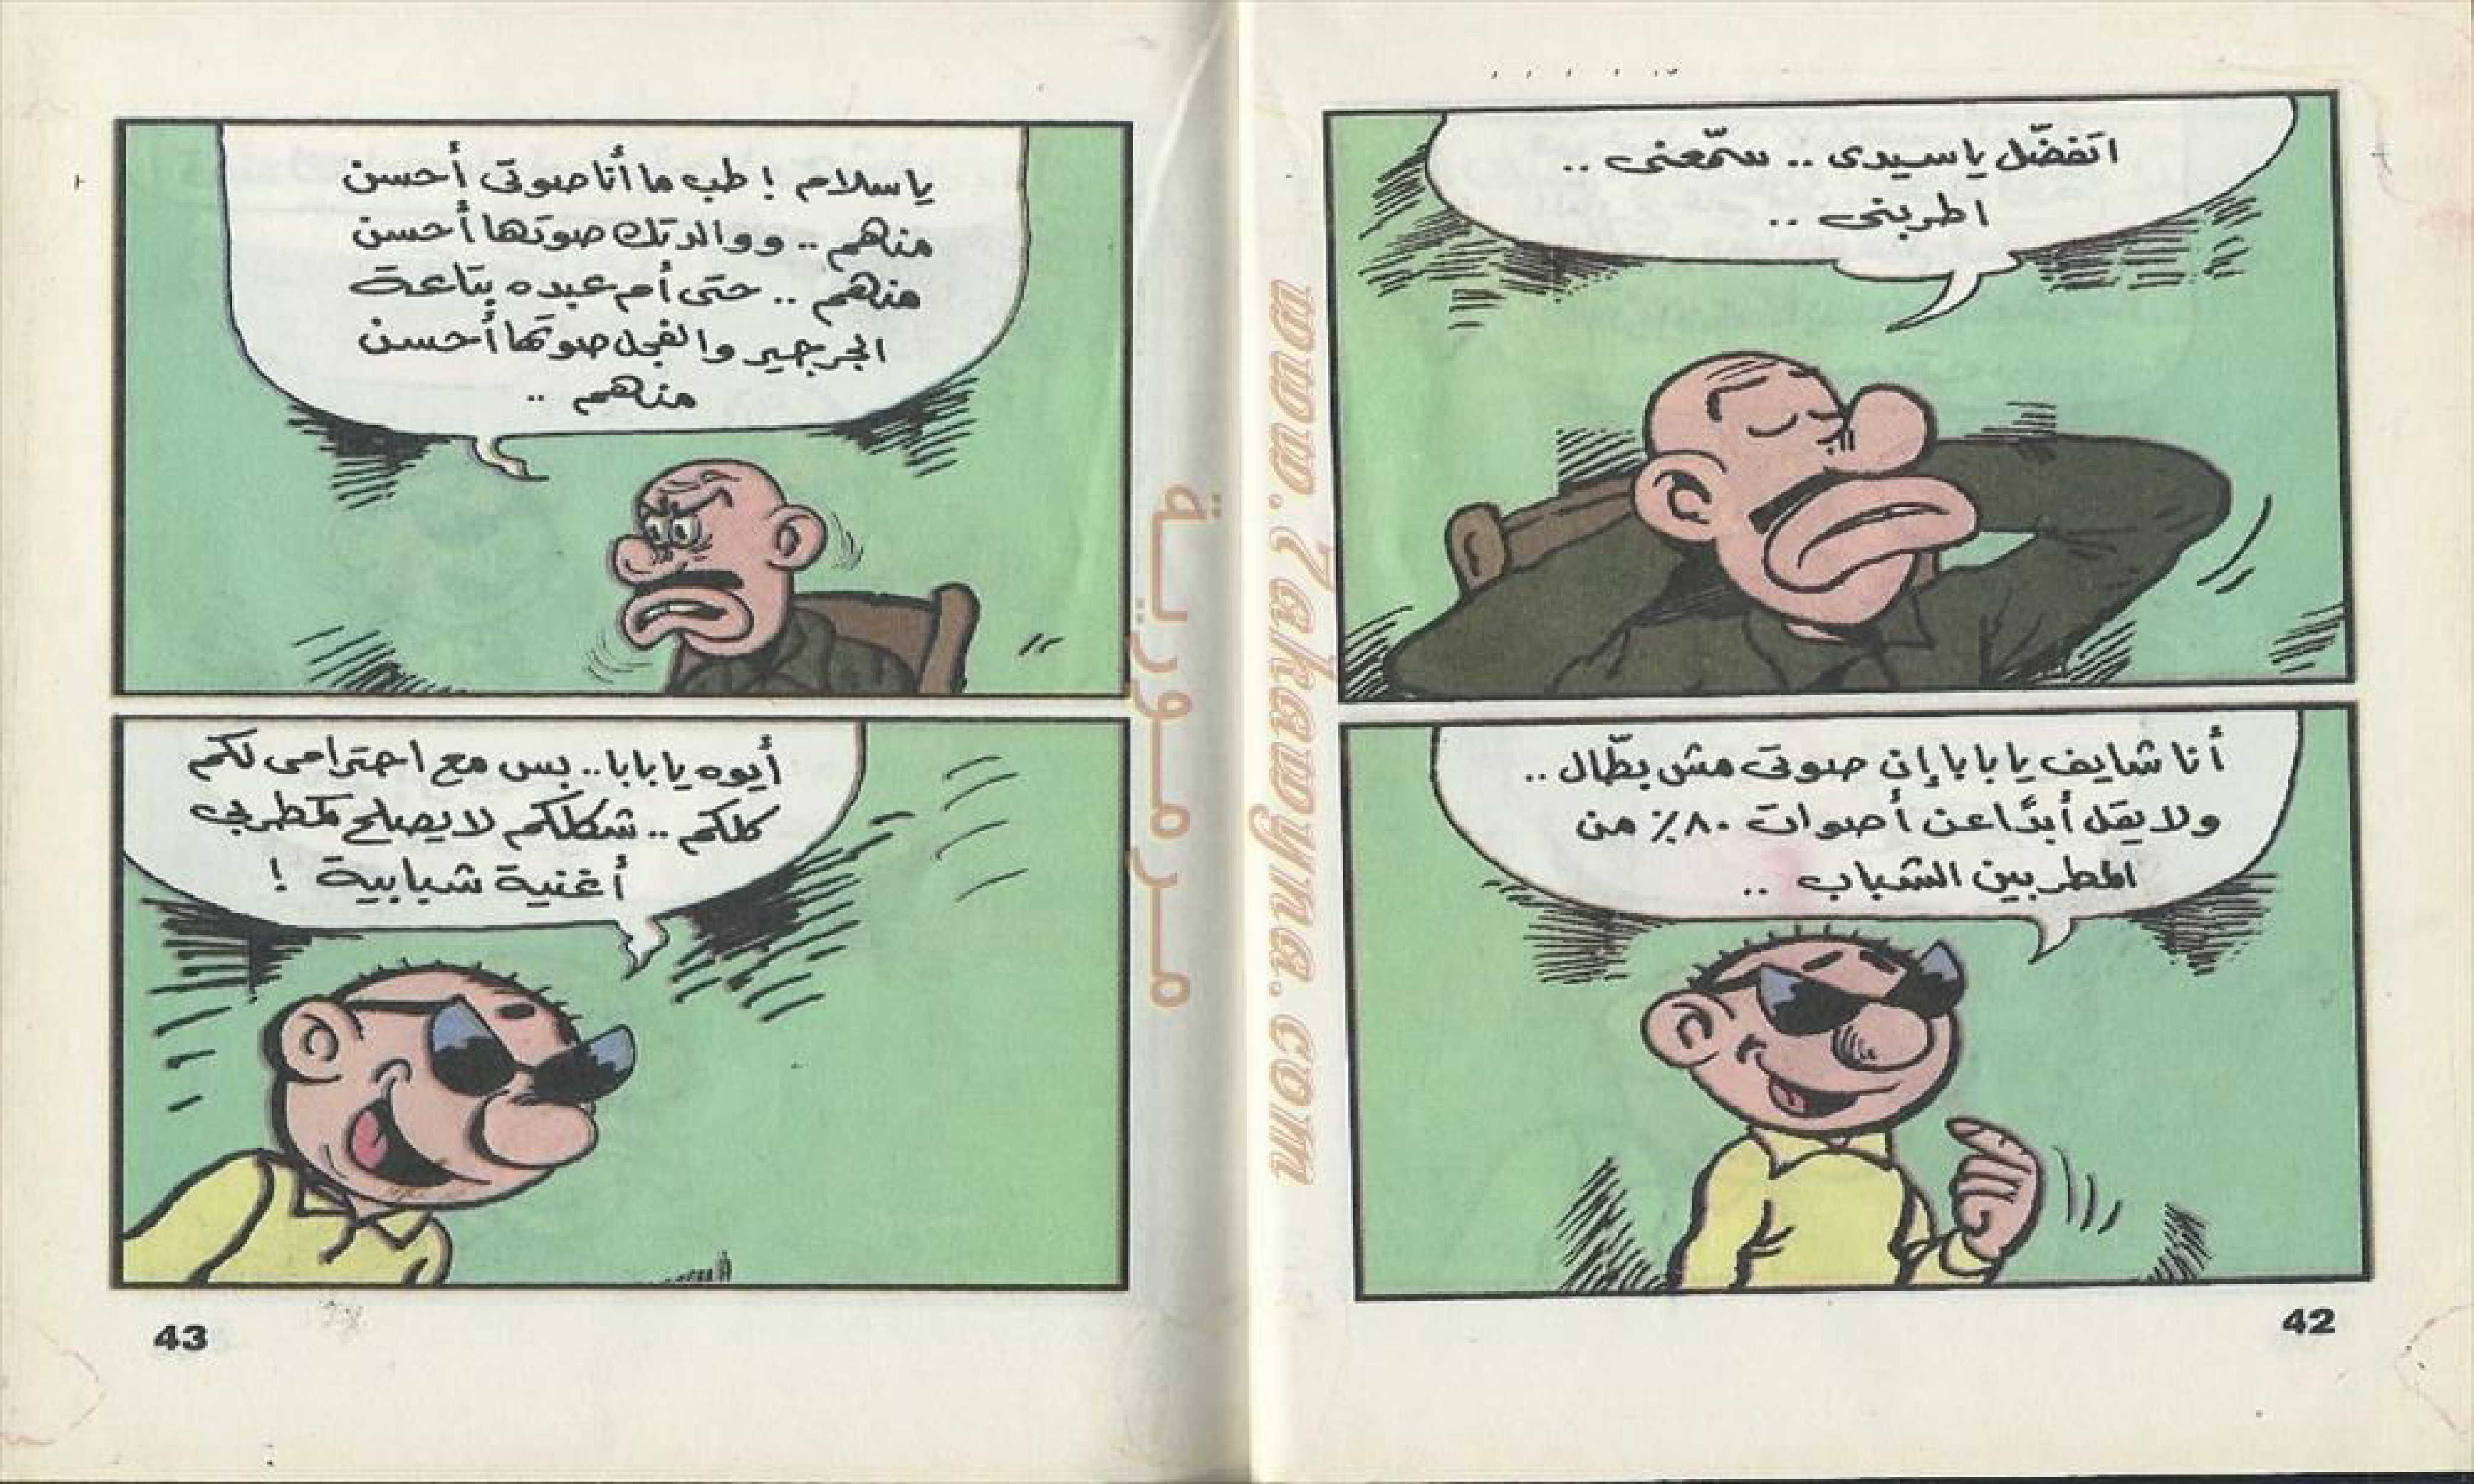 اتفضّل ياسيدى .. سمّعنى ..
اطربنى ..
أنا شايف يا بابا إن صوتى مش بطّال ..
ولا يقل أبدًا عن أصوات ٨٠٪ من
المطربين الشباب ..
42
ياسلام ! طب ما أنا صوتى أحسن
منهم .. ووالدتك صوتها أحسن
منهم .. حتى أم عبده بتاعة
الجرجير والفجل صوتها أحسن
منهم ..
أيوه يا بابا .. بس مع احترامى لكم
كلكم .. شكلكم لا يصلح لمطربى
أغنية شبابية !
43
مرمورية
www.7akawyna.com